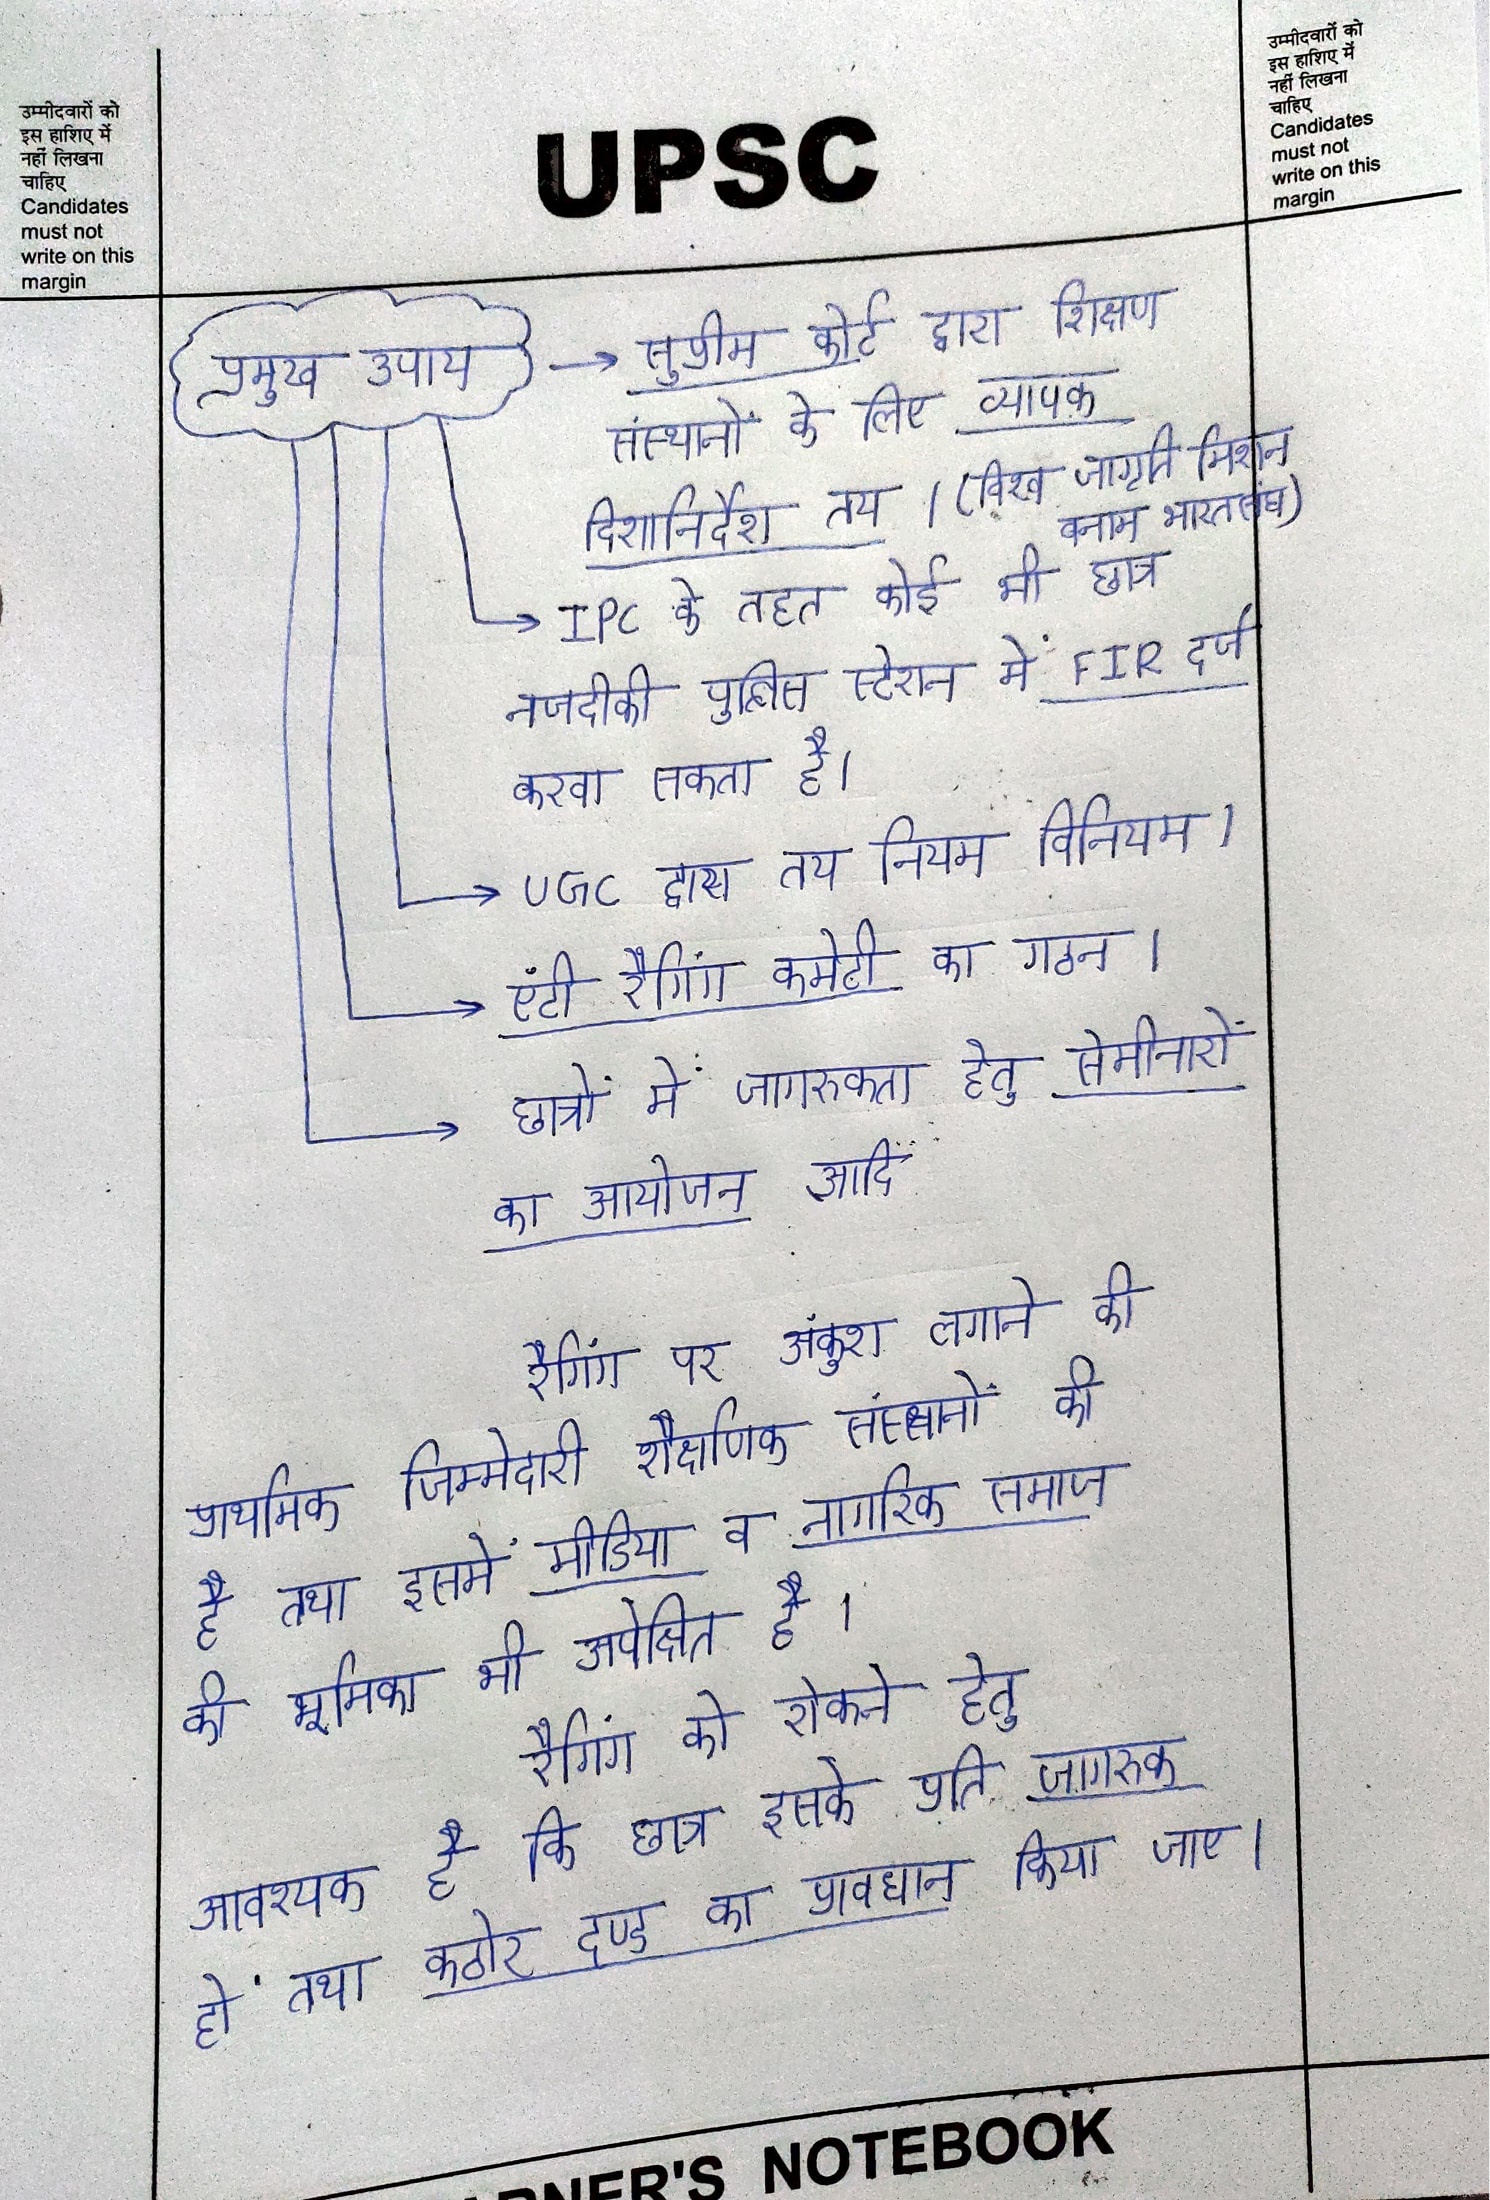 उम्मीदवारों को
इस हाशिए में
नहीं लिखना
चाहिए
Candidates
must not
write on this
margin
UPSC
उम्मीदवारों को
इस हाशिए में
नहीं लिखना
चाहिए
Candidates
must not
write on this
margin
प्रमुख उपाय → सुप्रीम कोर्ट द्वारा शिक्षण
संस्थानों के लिए व्यापक
दिशानिर्देश तय । (विश्व जागृति मिशन
बनाम भारत संघ)
→ IPC के तहत कोई भी छात्र
नजदीकी पुलिस स्टेशन में FIR दर्ज
करवा सकता है।
→ UGC द्वारा तय नियम विनियम ।
→ एंटी रैगिंग कमेटी का गठन ।
→ छात्रों में जागरुकता हेतु सेमीनारों
का आयोजन आदि
रैगिंग पर अंकुश लगाने की
प्राथमिक जिम्मेदारी शैक्षणिक संस्थानों की
है तथा इसमें मीडिया व नागरिक समाज
की भूमिका भी अपेक्षित है ।
रैगिंग को रोकने हेतु
आवश्यक है कि छात्र इसके प्रति जागरुक
हों तथा कठोर दण्ड का प्रावधान किया जाए ।
NER'S NOTEBOOK